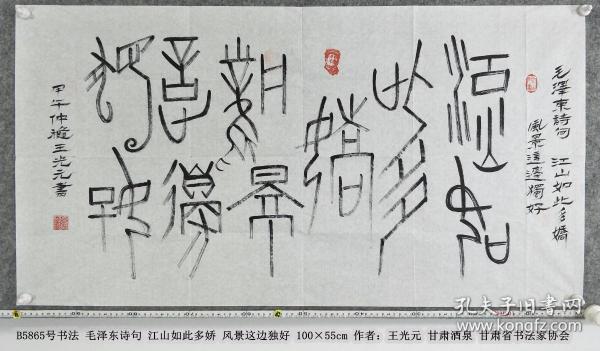 毛澤東詩句 江山如此多嬌
風景這邊獨好
江山如
此多
嬌
風景
這邊
獨好
甲午仲穐王光元書
B5865号书法 毛泽东诗句 江山如此多娇 风景这边独好 100×55cm 作者：王光元 甘肃酒泉 甘肃省书法家协会